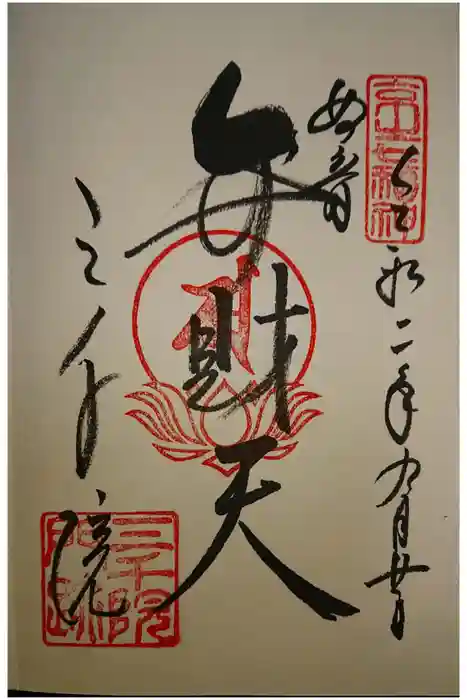 令和二年九月廿日
妙音
弁財天
三千院
三千院
門跡